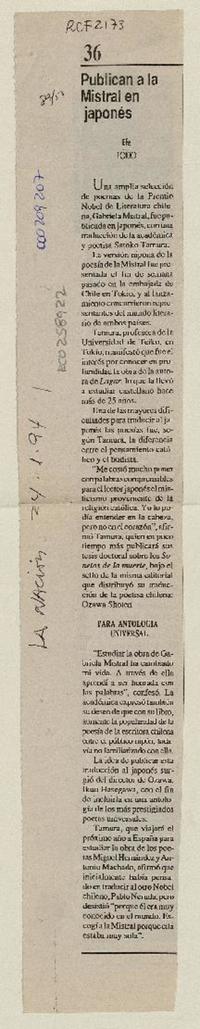 RCF2173
36
Publican a la
Mistral en
japonés
Efe
TOKIO
Una amplia selección
de poemas de la Premio
Nobel de Literatura chile-
na, Gabriela Mistral, fue pu-
blicada en japonés, con una
traducción de la académica
y poetisa Satoko Tamura.
La versión nipona de la
poesía de la Mistral fue pre-
sentada el fin de semana
pasado en la embajada de
Chile en Tokio, y al lanza-
miento concurrieron repre-
sentantes del mundo litera-
rio de ambos países.
Tamura, profesora de la
Universidad de Teikyo, en
Tokio, manifestó que fue el
interés por conocer en pro-
fundidad la obra de la auto-
ra de Lagar, lo que la llevó
a estudiar castellano hace
más de 25 años.
Una de las mayores difi-
cultades para traducir al ja-
ponés las poesías fue, se-
gún Tamura, la diferencia
entre el pensamiento cató-
lico y el budista.
"Me costó mucho poner
con palabras comprensibles
para el lector japonés el mis-
ticismo proveniente de la
religión católica. Yo lo po-
día entender en la cabeza,
pero no en el corazón", afir-
mó Tamura, quien en poco
tiempo más publicará sus
tesis doctoral sobre los So-
netos de la muerte, bajo el
sello de la misma editorial
que distribuyó su traduc-
ción de la poetisa chilena:
Ozawa Shoten
PARA ANTOLOGIA
UNIVERSAL
"Estudiar la obra de Ga-
briela Mistral ha cambiado
mi vida. A través de ella
aprendí a ser honrada con
las palabras", confesó. La
académica expresó también
su deseo de que con su libro,
aumente la popularidad de la
poesía de la escritora chilena
entre el público nipón, toda-
vía no familiarizado con ella.
La idea de publicar esta
traducción al japonés sur-
gió del director de Ozawa,
Ikuo Hasegawa, con el fin
de incluirla en una antolo-
gía de los más prestigiados
poetas universales.
Tamura, que viajará el
próximo año a España para
estudiar la obra de los poe-
tas Miguel Hernández y An-
tonio Machado, afirmó que
inicialmente había pensa-
do en traducir al otro Nobel
chileno, Pablo Neruda, pero
desistió "porque él era muy
conocido en el mundo. Es-
cogí a la Mistral porque ella
estaba muy sola".
000209207
000258922
LA NACIÓN 24.1.94